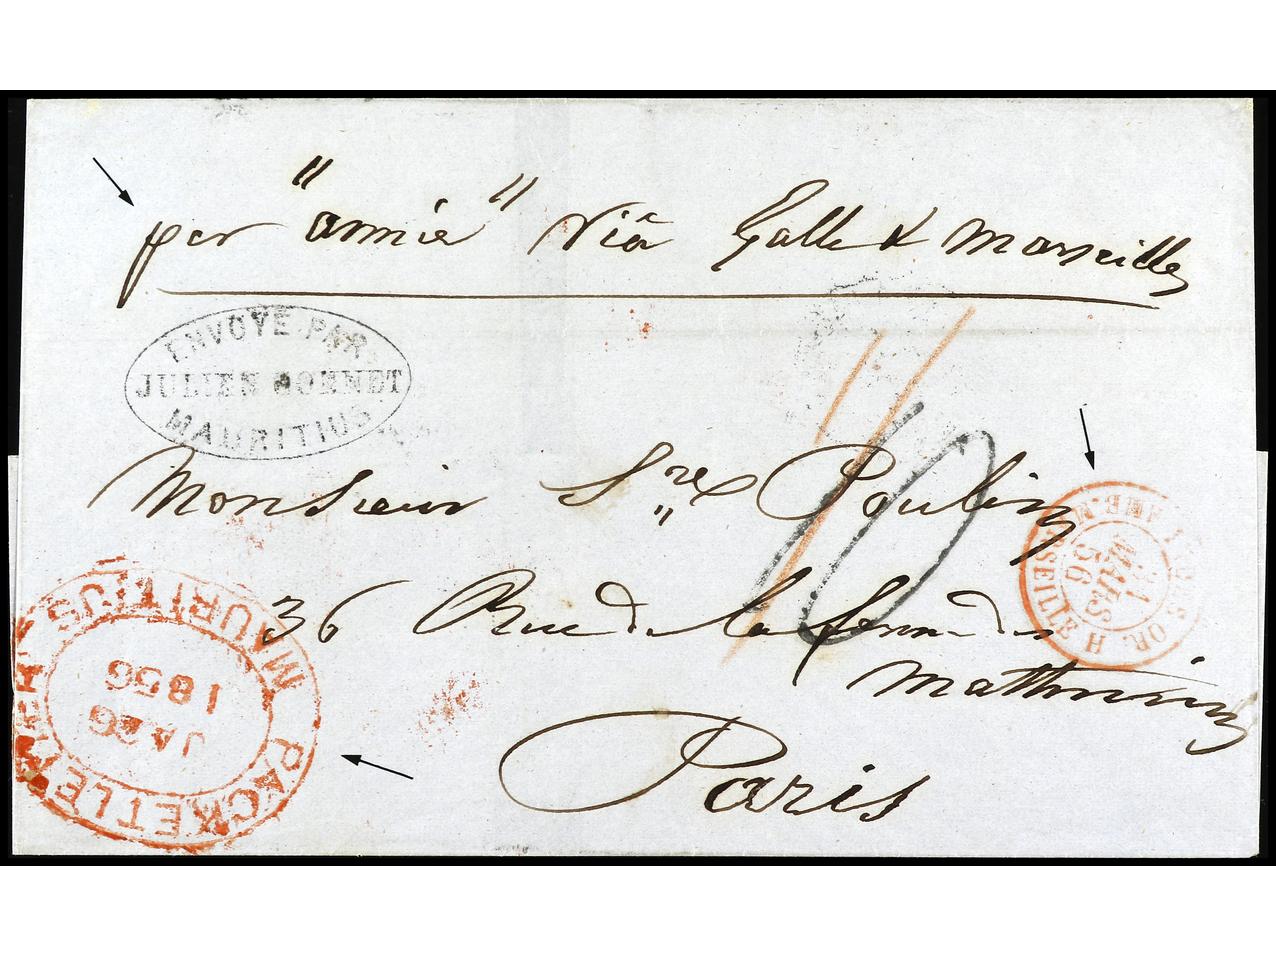 per "annie" via Galle & Marseilles
ENVOYÉ PAR
JULIEN BONNET
MAURITIUS
10
Monsieur
Poulin
36 Rue de la ferme des
Mathurins
Paris
PACKET LETTER MAURITIUS
JA 26
1856
MARS
56